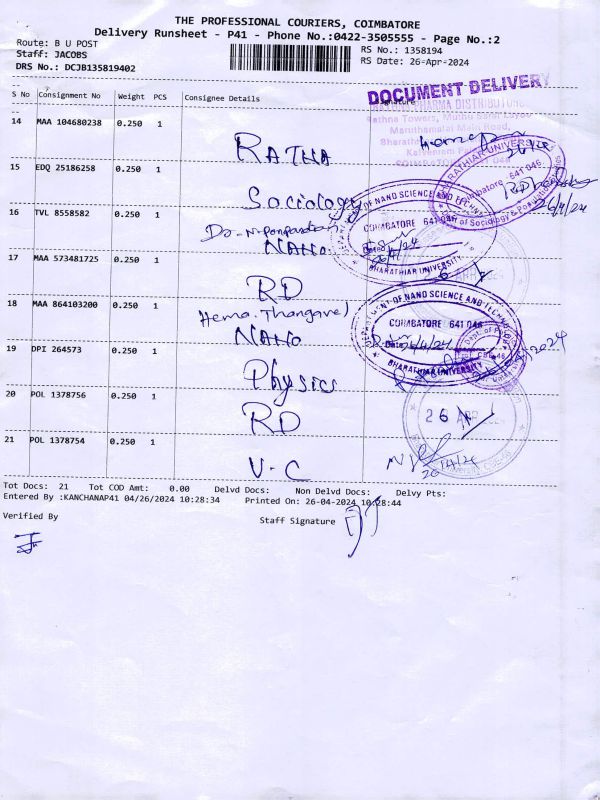 THE PROFESSIONAL COURIERS, COIMBATORE
Delivery Runsheet - P41 - Phone No.:0422-3505555 - Page No.:2
Route: B U POST
Staff: JACOBS
DRS No.: DCJB135819402
RS No.: 1358194
RS Date: 26-Apr-2024
DOCUMENT DELIVERY
S No Consignment No Weight PCS Consignee Details Signature
14 MAA 104680238 0.250 1
RATNA
15 EDQ 25186258 0.250 1
Sociology
BHARATHIAR UNIVERSITY
Coimbatore - 641 046
26/4/24
16 TVL 8558582 0.250 1
NANO
COIMBATORE 641 046
BHARATHIAR UNIVERSITY
17 MAA 573481725 0.250 1
RD
18 MAA 864103200 0.250 1
Hema. Thangavel
NANO
DEPARTMENT OF NANO SCIENCE AND TECHNOLOGY
COIMBATORE 641 046
Date
BHARATHIAR UNIVERSITY
19 DPI 264573 0.250 1
Physics
20 POL 1378756 0.250 1
RD
26 APR
21 POL 1378754 0.250 1
V-C
Tot Docs: 21 Tot COD Amt: 0.00 Delvd Docs: Non Delvd Docs: Delvy Pts:
Entered By :KANCHANAP41 04/26/2024 10:28:34 Printed On: 26-04-2024 10:28:44
Verified By
Staff Signature